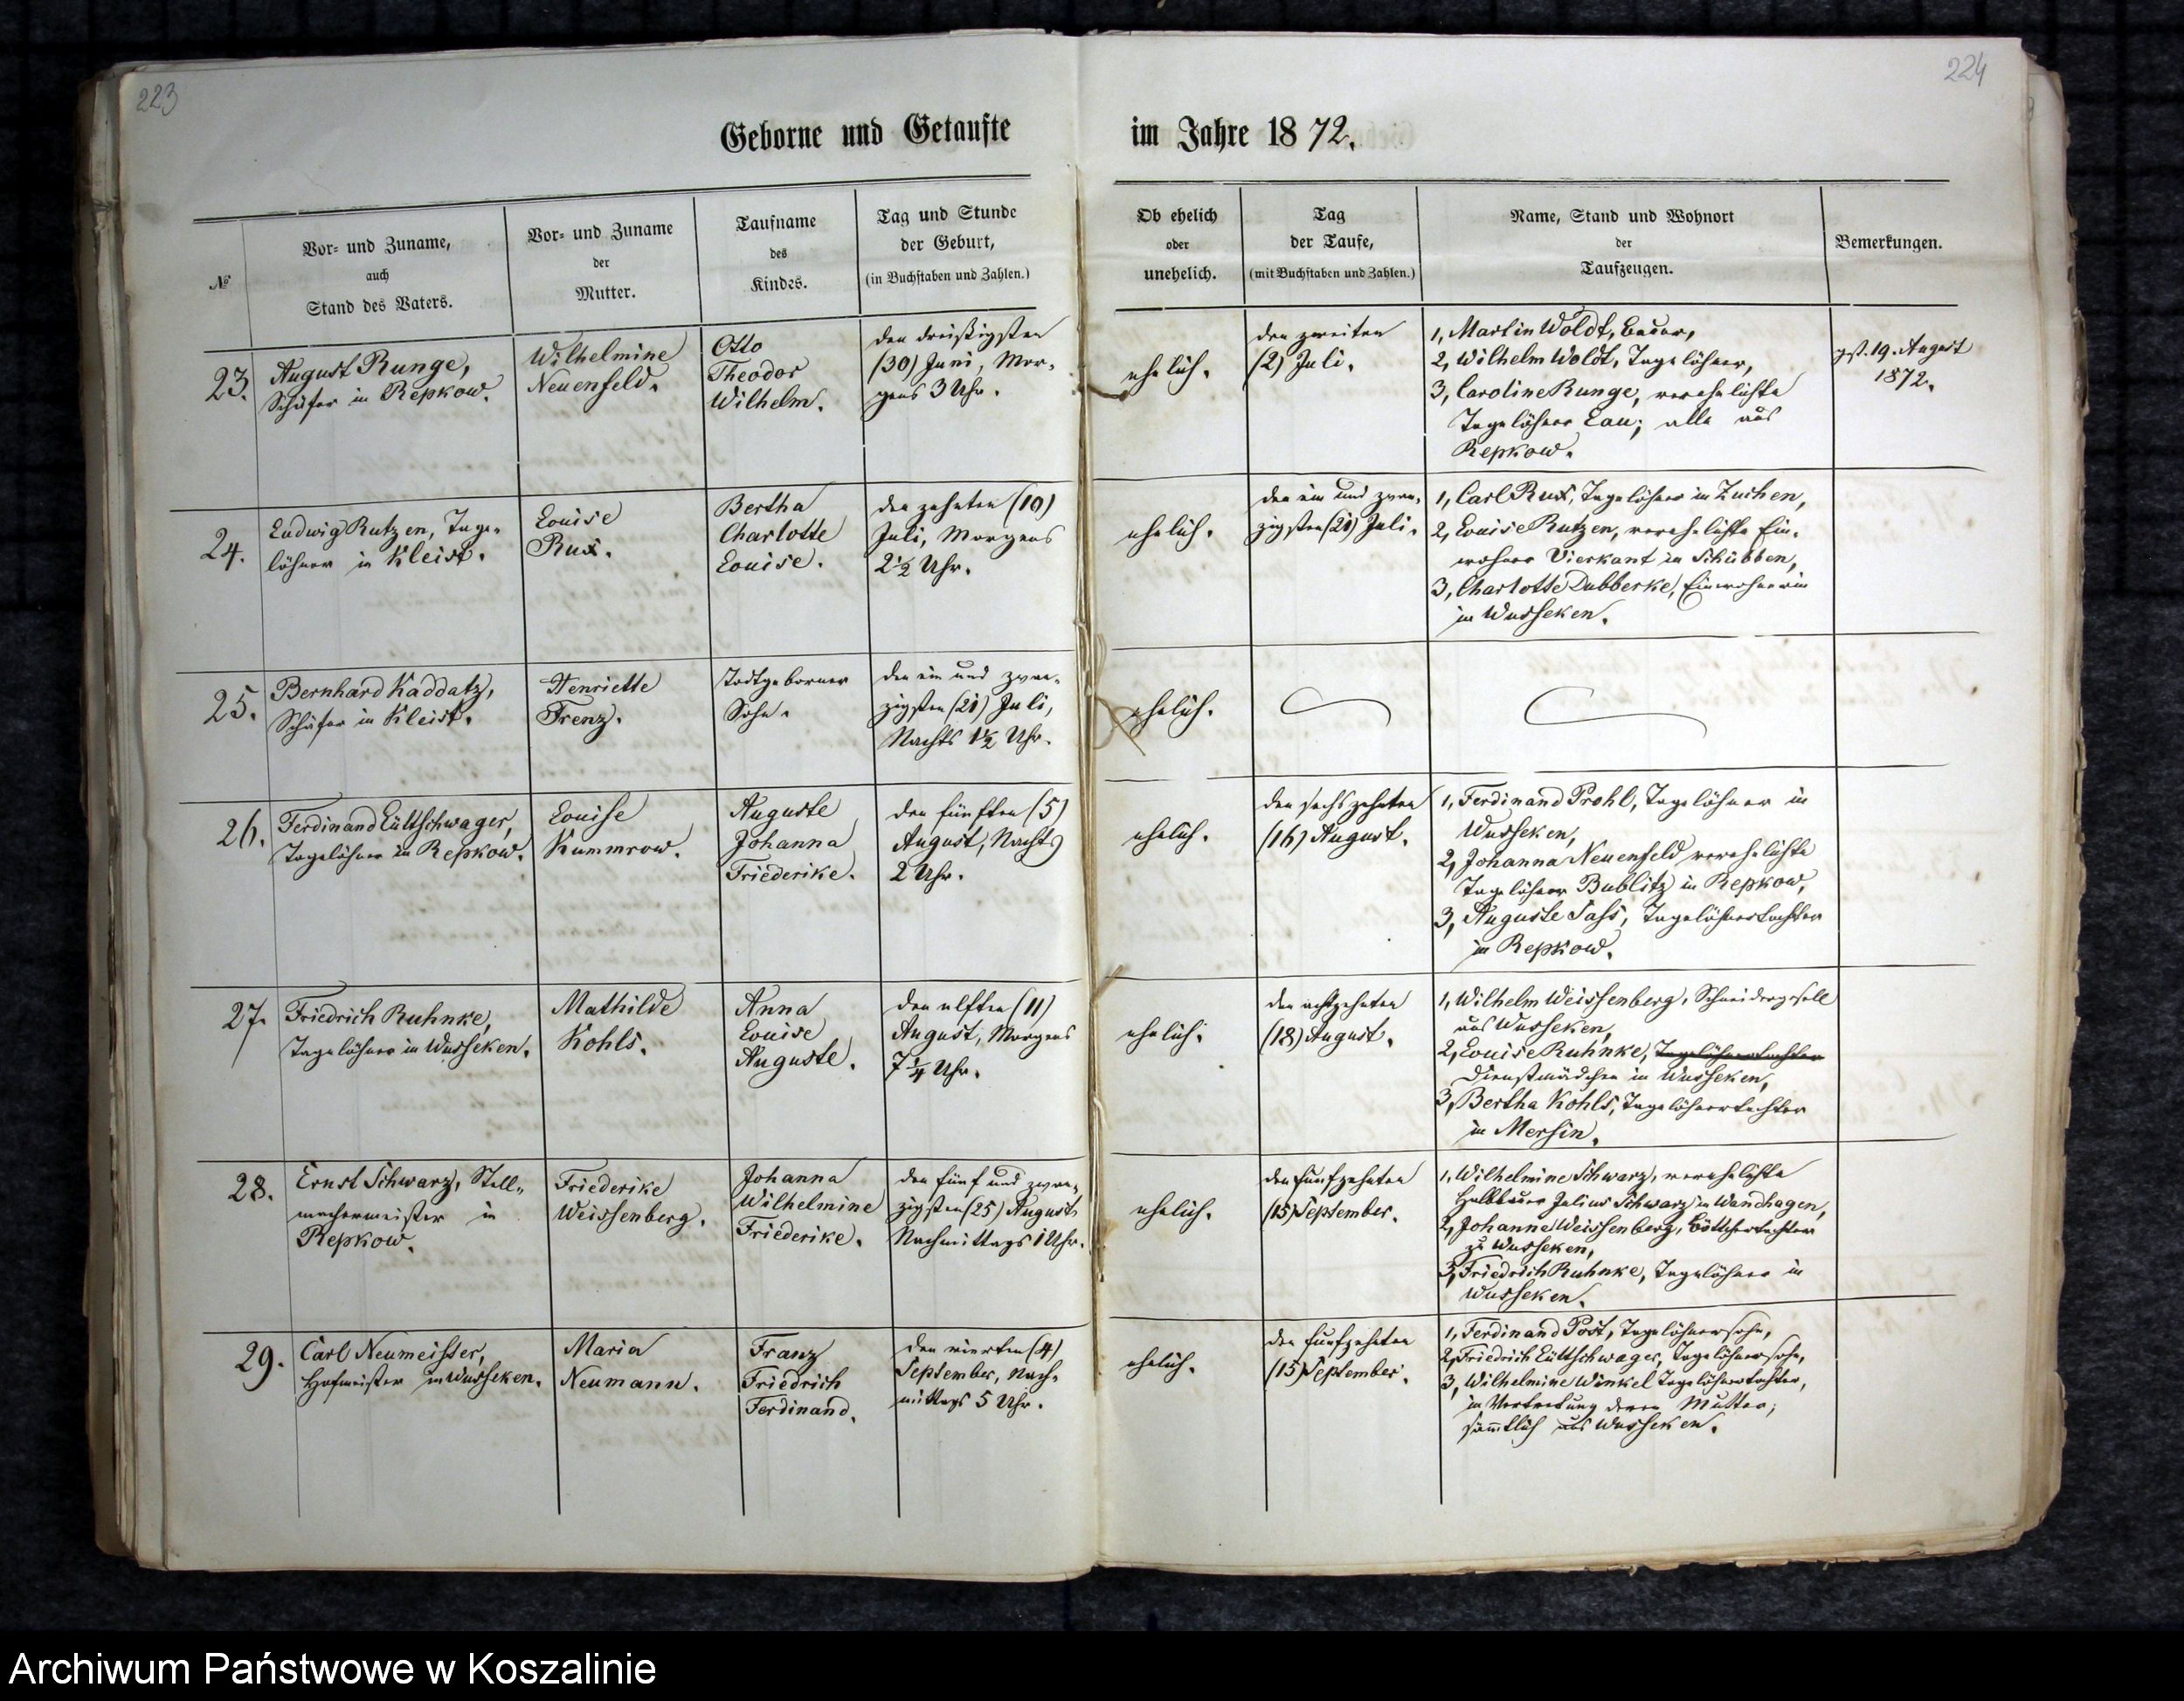 223
224
Geborne und Getaufte
im Jahre 1872.
№
Vor- und Zuname,
auch
Stand des Vaters.
Vor- und Zuname
der
Mutter.
Taufname
des
Kindes.
Tag und Stunde
der Geburt,
(in Buchstaben und Zahlen.)
Ob ehelich
oder
unehelich.
Tag
der Taufe,
(mit Buchstaben und Zahlen.)
Name, Stand und Wohnort
der
Taufzeugen.
Bemerkungen.
23.
August Runge,
Schäfer in Repkow.
Wilhelmine
Neuenfeld.
Otto
Theodor
Wilhelm.
den dreißigsten
(30) Juni, Mor-
gens 3 Uhr.
ehelich.
den zweiten
(2) Juli.
1, Martin Woldt, Bauer,
2, Wilhelm Woldt, Tagelöhner,
3, Caroline Runge, verehelichte
Tagelöhner Lau; alle aus
Repkow.
gst. 19. August
1872.
24.
Ludwig Rutzen, Tage-
löhner in Kleist.
Louise
Rux.
Bertha
Charlotte
Louise.
den zehnten (10)
Juli, Morgens
2½ Uhr.
ehelich.
den ein und zwan-
zigsten (21) Juli.
1, Carl Rux, Tagelöhner in Zuchen,
2, Louise Rutzen, verehelichte Ein-
wohner Vierkant in Schübben,
3, Charlotte Dubberke, Einwohnerin
in Wusseken.
25.
Bernhard Kaddatz,
Schäfer in Kleist.
Henriette
Frenz.
Todtgeborner
Sohn.
den ein und zwan-
zigsten (21) Juli,
Nachts 1½ Uhr.
ehelich.
26.
Ferdinand Lüttschwager,
Tagelöhner in Repkow.
Louise
Kummrow.
Auguste
Johanna
Friederike.
den fünften (5)
August, Nachts
2 Uhr.
ehelich.
den sechszehnten
(16) August.
1, Ferdinand Prohl, Tagelöhner in
Wusseken,
2, Johanna Neuenfeld verehelichte
Tagelöhner Bublitz in Repkow,
3, Auguste Sass, Tagelöhnertochter
in Repkow.
27.
Friedrich Ruhnke,
Tagelöhner in Wusseken.
Mathilde
Kohls.
Anna
Louise
Auguste.
den elften (11)
August, Morgens
7¼ Uhr.
ehelich.
den achtzehnten
(18) August.
1, Wilhelm Weissenberg, Schneidergesell
aus Wusseken,
2, Louise Ruhnke, Tagelöhnertochter
Dienstmädchen in Wusseken,
3, Bertha Kohls, Tagelöhnertochter
in Mersin.
28.
Ernst Schwarz, Stell-
machermeister in
Repkow.
Friederike
Weissenberg.
Johanna
Wilhelmine
Friederike.
den fünf und zwan-
zigsten (25) August
Nachmittags 1 Uhr.
ehelich.
den fünfzehnten
(15) September.
1, Wilhelmine Schwarz, verehelichte
Halbbauer Julius Schwarz in Wandhagen,
2, Johanne Weissenberg, Böttchertochter
zu Wusseken,
3, Friedrich Ruhnke, Tagelöhner in
Wusseken.
29.
Carl Neumeister,
Hofmeister in Wusseken.
Maria
Neumann.
Franz
Friedrich
Ferdinand.
den vierten (4)
September, Nach-
mittags 5 Uhr.
ehelich.
den fünfzehnten
(15) September.
1, Ferdinand Post, Tagelöhnersohn,
2, Friedrich Lüttschwager, Tagelöhnersohn,
3, Wilhelmine Winkel Tagelöhnertochter,
in Vertretung deren Mutter;
sämmtlich aus Wusseken.
Archiwum Państwowe w Koszalinie